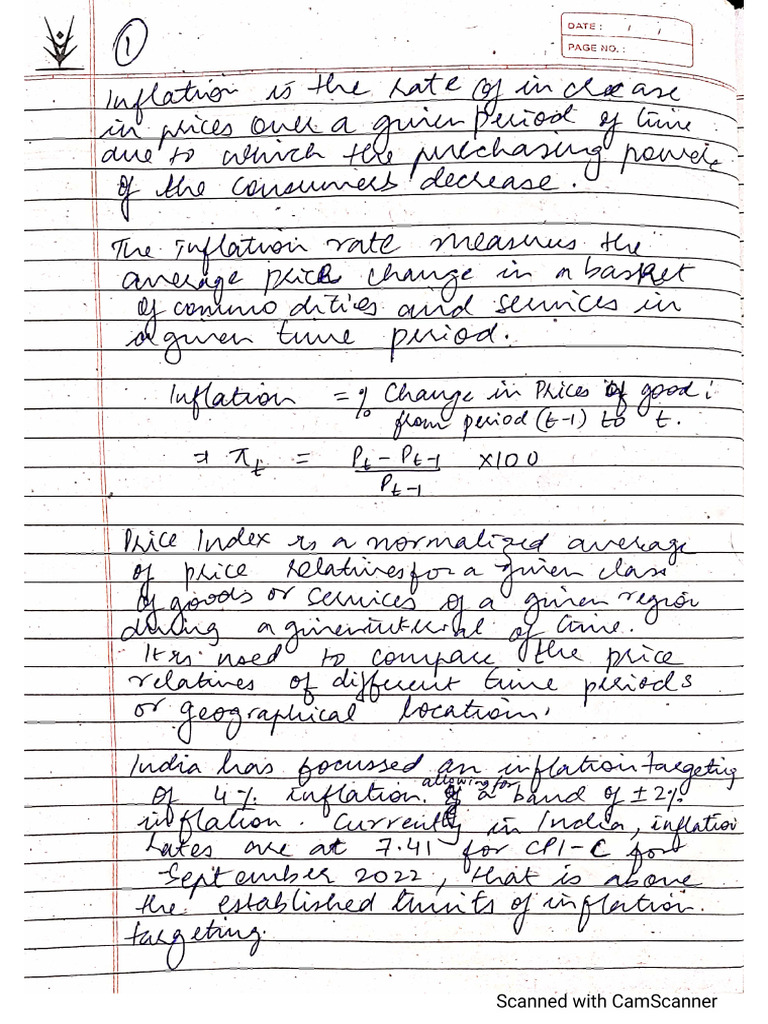 1
DATE: / /
PAGE NO.:
Inflation is the rate of increase
in prices over a given period of time
due to which the purchasing power
of the consumers decrease.
The Inflation rate measures the
average price change in a basket
of commodities and services in
a given time period.
Inflation = % Change in Prices of good i
from period (t-1) to t.
⇒ π_t = (P_t - P_t-1) / P_t-1 × 100
Price Index is a normalized average
of price relatives for a given class
of goods or services of a given region
during a given interval of time.
It is used to compare the price
relatives of different time periods
or geographical locations.
India has focussed an inflation targeting
of 4% inflation allowing for a band of ±2%
inflation. Currently in India, inflation
rates are at 7.41 for CPI-C for
September 2022, that is above
the established limits of inflation
targeting.
Scanned with CamScanner